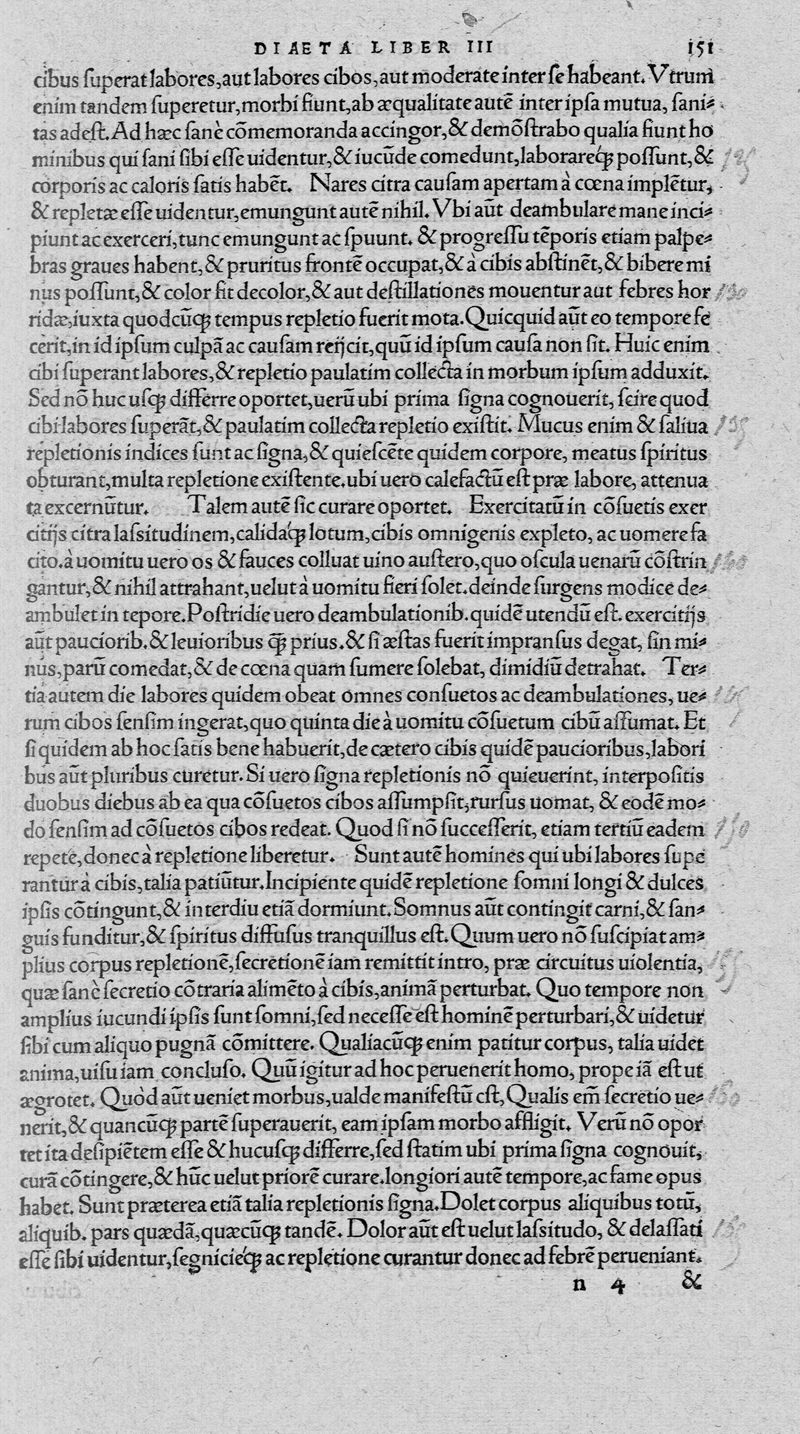 DIAETA LIBER III 151
cibus ſuperat labores,aut labores cibos,aut moderate inter ſe habeant. Vtrum
enim tandem ſuperetur,morbi fiunt,ab æqualitate autē inter ipſa mutua, ſani⸗
tas adeſt. Ad hæc ſanè cōmemoranda accingor,& demōſtrabo qualia fiunt ho
minibus qui ſani ſibi eſſe uidentur,& iucūde comedunt,laborareq́ꝫ poſſunt,&
corporis ac caloris ſatis habēt. Nares citra cauſam apertam à cœna implētur,
& repletæ eſſe uidentur,emungunt autē nihil. Vbi aūt deambulare mane inci⸗
piunt ac exerceri,tunc emungunt ac ſpuunt. & progreſſu tēporis etiam palpe⸗
bras graues habent,& pruritus frontē occupat,& à cibis abſtinēt,& bibere mi
nus poſſunt,& color fit decolor,& aut deſtillationes mouentur aut febres hor
ridæ,iuxta quodcūqꝫ tempus repletio fuerit mota. Quicquid aūt eo tempore fe
cerit,in id ipſum culpā ac cauſam reijcit,quū id ipſum cauſa non ſit. Huic enim
cibi ſuperant labores,& repletio paulatim collecta in morbum ipſum adduxit.
Sed nō huc uſqꝫ differre oportet,uerū ubi prima ſigna cognouerit, ſcire quod
cibi labores ſuperāt,& paulatim collecta repletio exiſtit. Mucus enim & ſaliua
repletionis indices ſunt ac ſigna,& quieſcēte quidem corpore, meatus ſpiritus
obturant,multa repletione exiſtente.ubi uero calefactū eſt præ labore, attenua
ta excernūtur. Talem autē ſic curare oportet. Exercitatū in cōſuetis exer
citijs citra laſsitudinem,calidaq́ꝫ lotum,cibis omnigenis expleto, ac uomere fa
cito.à uomitu uero os & fauces colluat uino auſtero,quo oſcula uenarū cōſtrin
gantur,& nihil attrahant,uelut à uomitu fieri ſolet.deinde ſurgens modice de⸗
ambulet in tepore.Poſtridie uero deambulationib.quidē utendū eſt. exercitijs
aūt pauciorib.& leuioribus qꝫ̃ prius.& ſi æſtas fuerit impranſus degat, ſin mi⸗
nus,parū comedat,& de cœna quam ſumere ſolebat, dimidiū detrahat. Ter⸗
tia autem die labores quidem obeat omnes conſuetos ac deambulationes, ue⸗
rum cibos ſenſim ingerat,quo quinta die à uomitu cōſuetum cibū aſſumat. Et
ſi quidem ab hoc ſatis bene habuerit,de cætero cibis quidē paucioribus,labori
bus aūt pluribus curetur. Si uero ſigna repletionis nō quieuerint, interpoſitis
duobus diebus ab ea qua cōſuetos cibos aſſumpſit,rurſus uomat, & eodē mo⸗
do ſenſim ad cōſuetos cibos redeat. Quod ſi nō ſucceſſerit, etiam tertiū eadem
repete,donec à repletione liberetur. Sunt autē homines qui ubi labores ſupe
rantur à cibis,talia patiūtur.Incipiente quidē repletione ſomni longi & dulces
ipſis cōtingunt,& interdiu etiā dormiunt. Somnus aūt contingit carni,& ſan⸗
guis funditur,& ſpiritus diffuſus tranquillus eſt. Quum uero nō ſuſcipiat am⸗
plius corpus repletionē,ſecretionē iam remittit intro, præ circuitus uiolentia,
quæ ſanè ſecretio cōtraria alimēto à cibis,animā perturbat. Quo tempore non
amplius iucundi ipſis ſunt ſomni,ſed neceſſe eſt hominē perturbari,& uidetur
ſibi cum aliquo pugnā cōmittere. Qualiacūqꝫ enim patitur corpus, talia uidet
anima,uiſu iam concluſo. Quū igitur ad hoc peruenerit homo, prope iā eſt ut
ægrotet. Quòd aūt ueniet morbus,ualde manifeſtū eſt, Qualis em̄ ſecretio ue⸗
nerit,& quancūqꝫ partē ſuperauerit, eam ipſam morbo affligit. Verū nō opor
tet ita deſipiētem eſſe & hucuſqꝫ differre,ſed ſtatim ubi prima ſigna cognouit,
curā cōtingere,& hūc uelut priorē curare.longiori autē tempore,ac fame opus
habet. Sunt præterea etiā talia repletionis ſigna.Dolet corpus aliquibus totū,
aliquib. pars quædā,quæcūqꝫ tandē. Dolor aūt eſt uelut laſsitudo, & delaſſati
eſſe ſibi uidentur,ſegnicieq́ꝫ ac repletione curantur donec ad febrē perueniant.
n 4 &